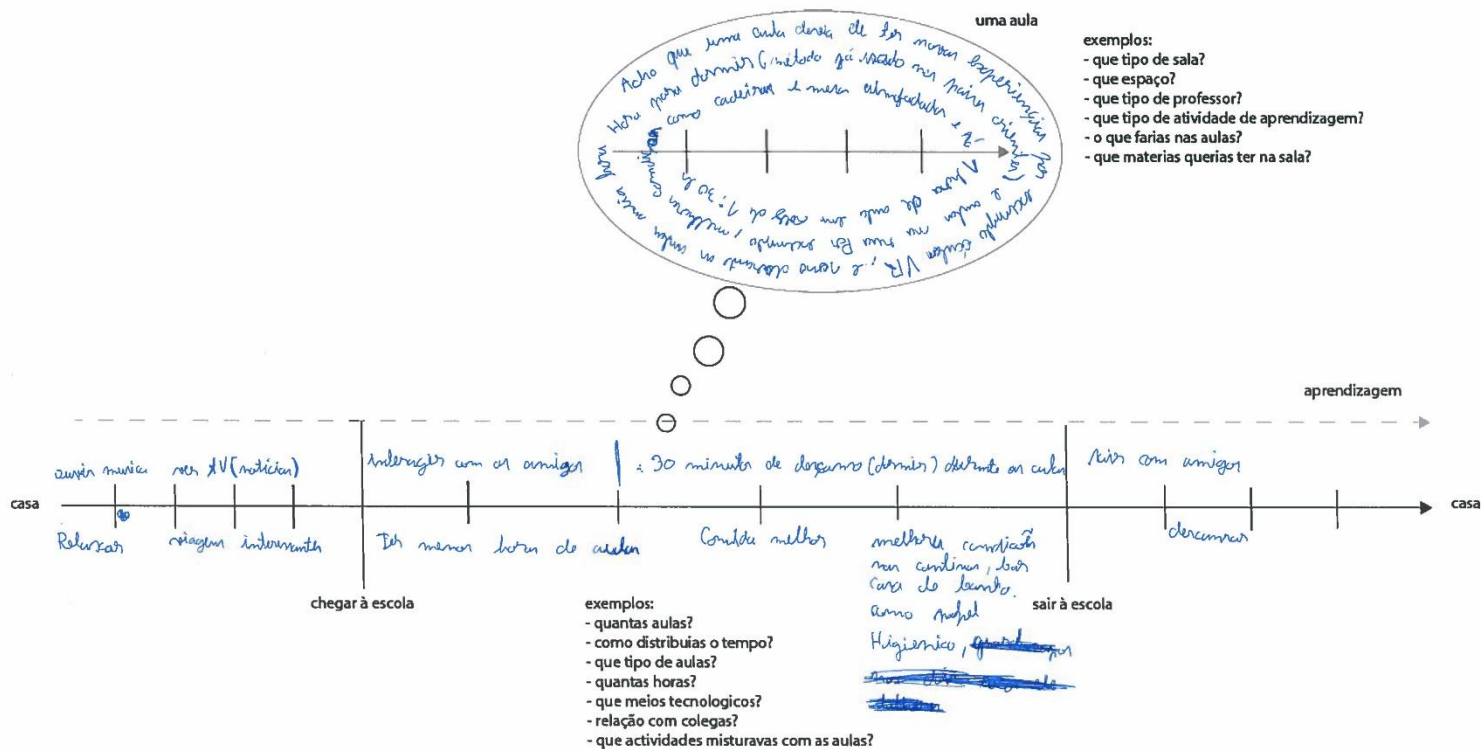 uma aula
exemplos:
- que tipo de sala?
- que espaço?
- que tipo de professor?
- que tipo de atividade de aprendizagem?
- o que farias nas aulas?
- que materias querias ter na sala?
Acho que uma aula devia de ter novas experiencias por exemplo óculos VR, e sono durante as aulas meia hora
Hora para dormir (método já usado nos paises orientais) e aulas na rua Por exemplo, melhores condições
como cadeiras e mesas almofadadas e
1 hora de aula em vez de 1:30 h
aprendizagem
ouvir musica ver TV (noticias) interagir com os amigos 30 minutos de descanso (dormir) durante as aulas sair com amigos
casa casa
Relaxar viagem interessantes Ter menos horas de aulas Comida melhor melhores condições descansar
nas cantinas, bar
casa de banho.
como papel
Higienico,
chegar à escola
sair à escola
exemplos:
- quantas aulas?
- como distribuias o tempo?
- que tipo de aulas?
- quantas horas?
- que meios tecnologicos?
- relação com colegas?
- que actividades misturavas com as aulas?